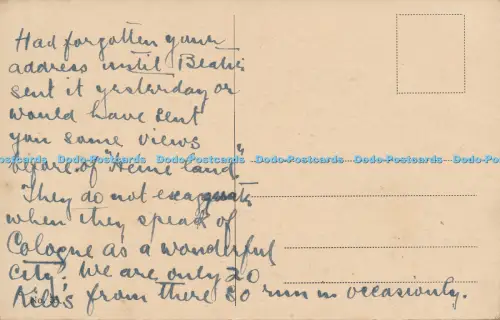 Had forgotten your
address until Beatrice
sent it yesterday or
would have sent
you some views
before of "Heine land".
Dodo-Postcards Dodo-Postcards Dodo-Postcards Dodo-Postcards Dodo-Postcards
They do not exaggerate
when they speak of
Cologne as a wonderful
City; We are only 20
Kilos from there so run in occasionly.